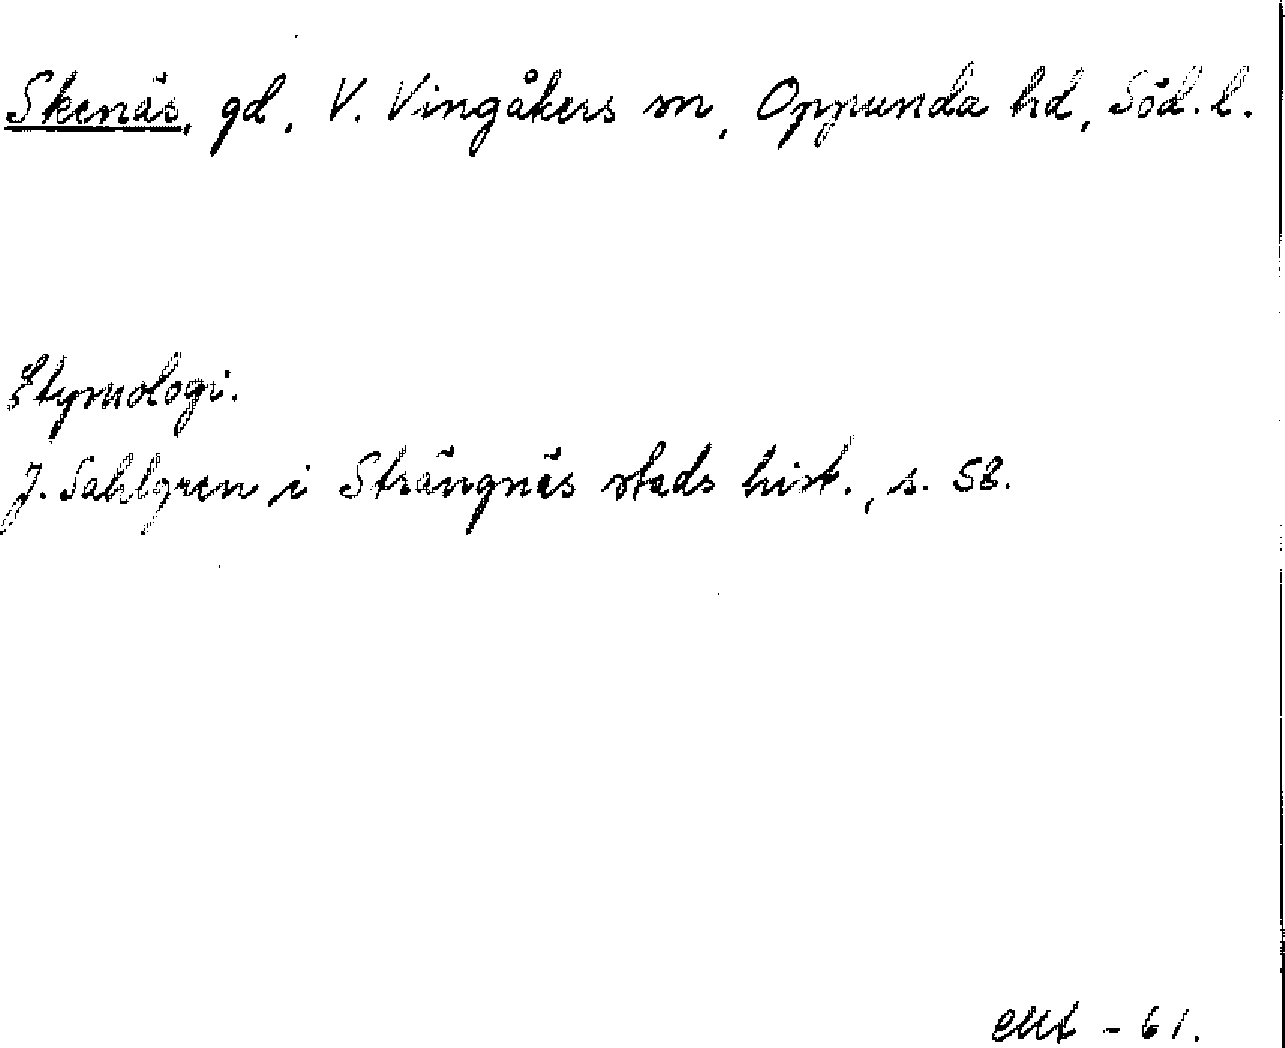 Skenäs, gd, V. Vingåkers sn, Oppunda hd, Söd. l.
Etymologi.
J. Sahlgren i Strängnäs stads hist., s. 58.
- 61.